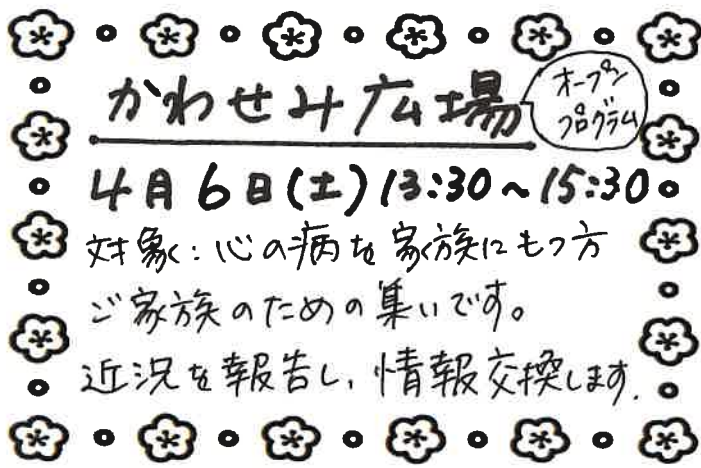 かわせみ広場
オープン
プログラム
4月6日(土)13:30～15:30
対象：心の病を家族にもつ方
ご家族のための集いです。
近況を報告し、情報交換します。